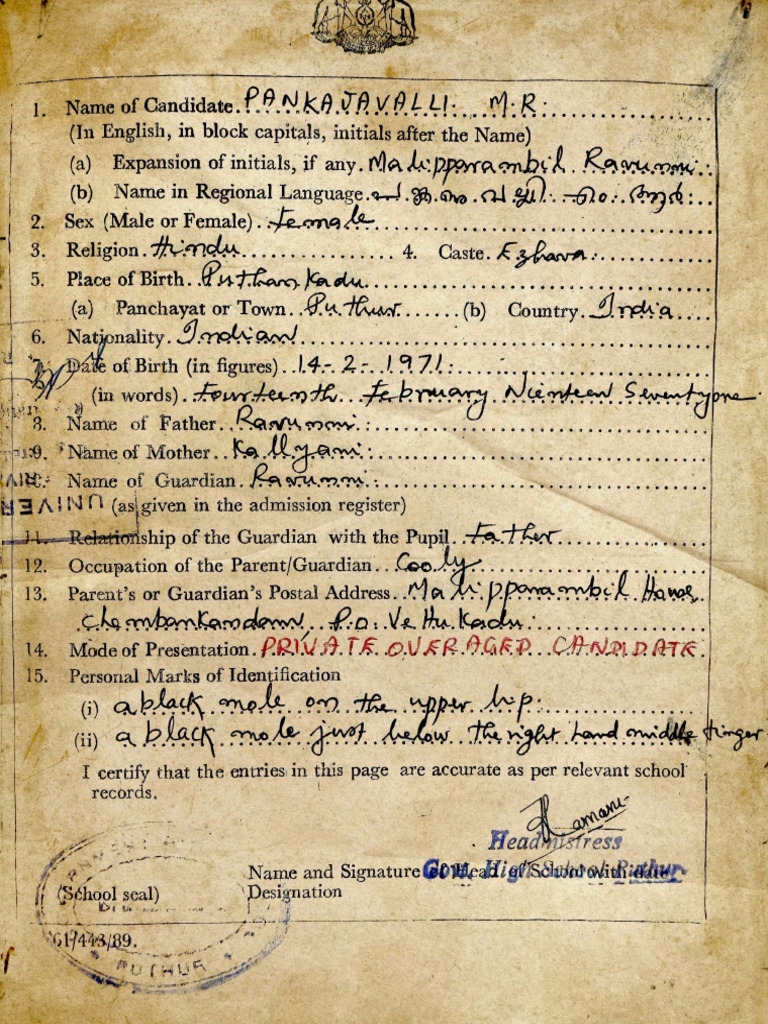 1. Name of Candidate. PANKAJAVALLI. M.R.
(In English, in block capitals, initials after the Name)
(a) Expansion of initials, if any. Malipparambil Ravunni.
(b) Name in Regional Language. പങ്കജവല്ലി. എം. ആർ.
2. Sex (Male or Female). Female
3. Religion. Hindu 4. Caste. Ezhava.
5. Place of Birth. Puthankadu
(a) Panchayat or Town. Puthur (b) Country. India
6. Nationality. Indian
7. Date of Birth (in figures) 14-2-1971.
(in words). Fourteenth February Ninteen Seventyone.
8. Name of Father. Ravunni.
9. Name of Mother. Kallyani.
10. Name of Guardian. Ravunni.
UNIVER (as given in the admission register)
11. Relationship of the Guardian with the Pupil. Father
12. Occupation of the Parent/Guardian. Cooly
13. Parent's or Guardian's Postal Address. Malipparambil House,
P.O. Vettukadu.
14. Mode of Presentation. PRIVATE OVERAGED CANDIDATE.
15. Personal Marks of Identification
(i) a black mole on the upper lip.
(ii) a black mole just below the right hand middle finger
I certify that the entries in this page are accurate as per relevant school
records.
Ramani
Headmistress
Name and Signature of Head of School with date
Govt. High School Puthur.
(School seal) Designation
61/443/89.
PUTHUR